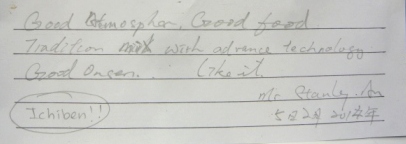 Good Atmospher. Good food
Tradition mix with advance technology
Good Onsen.. Like it.
Mr Stanley
Ichiben!!
5日2月2012年